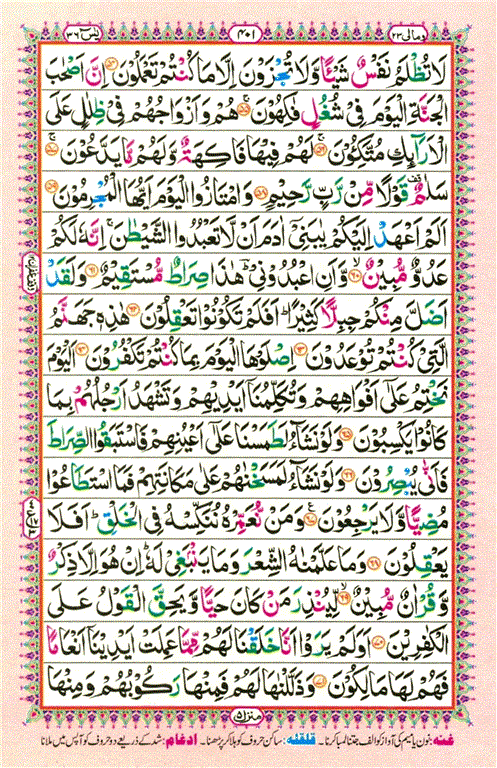 وَمَالِيَ ٢٣
٤٠١
يٰسٓ ٣٦
لَا تُظْلَمُ نَفْسٌ شَيْـًٔا وَّلَا تُجْزَوْنَ اِلَّا مَا كُنْتُمْ تَعْمَلُوْنَ ۝٥٤ اِنَّ اَصْحٰبَ
الْجَنَّةِ الْيَوْمَ فِيْ شُغُلٍ فٰكِهُوْنَ ۝٥٥ هُمْ وَاَزْوَاجُهُمْ فِيْ ظِلٰلٍ عَلَى
الْاَرَآىِٕكِ مُتَّكِـُٔوْنَ ۝٥٦ لَهُمْ فِيْهَا فَاكِهَةٌ وَّلَهُمْ مَّا يَدَّعُوْنَ ۝٥٧
سَلٰمٌ قَوْلًا مِّنْ رَّبٍّ رَّحِيْمٍ ۝٥٨ وَامْتَازُوا الْيَوْمَ اَيُّهَا الْمُجْرِمُوْنَ ۝٥٩
اَلَمْ اَعْهَدْ اِلَيْكُمْ يٰبَنِيْٓ اٰدَمَ اَنْ لَّا تَعْبُدُوا الشَّيْطٰنَ ۚ اِنَّهٗ لَكُمْ
عَدُوٌّ مُّبِيْنٌ ۝٦٠ وَّاَنِ اعْبُدُوْنِيْ ؕ هٰذَا صِرَاطٌ مُّسْتَقِيْمٌ ۝٦١ وَلَقَدْ
اَضَلَّ مِنْكُمْ جِبِلًّا كَثِيْرًا ؕ اَفَلَمْ تَكُوْنُوْا تَعْقِلُوْنَ ۝٦٢ هٰذِهٖ جَهَنَّمُ
الَّتِيْ كُنْتُمْ تُوْعَدُوْنَ ۝٦٣ اِصْلَوْهَا الْيَوْمَ بِمَا كُنْتُمْ تَكْفُرُوْنَ ۝٦٤ اَلْيَوْمَ
نَخْتِمُ عَلٰٓى اَفْوَاهِهِمْ وَتُكَلِّمُنَآ اَيْدِيْهِمْ وَتَشْهَدُ اَرْجُلُهُمْ بِمَا
كَانُوْا يَكْسِبُوْنَ ۝٦٥ وَلَوْ نَشَآءُ لَطَمَسْنَا عَلٰٓى اَعْيُنِهِمْ فَاسْتَبَقُوا الصِّرَاطَ
فَاَنّٰى يُبْصِرُوْنَ ۝٦٦ وَلَوْ نَشَآءُ لَمَسَخْنٰهُمْ عَلٰى مَكَانَتِهِمْ فَمَا اسْتَطَاعُوْا
مُضِيًّا وَّلَا يَرْجِعُوْنَ ۝٦٧ وَمَنْ نُّعَمِّرْهُ نُنَكِّسْهُ فِي الْخَلْقِ ؕ اَفَلَا
يَعْقِلُوْنَ ۝٦٨ وَمَا عَلَّمْنٰهُ الشِّعْرَ وَمَا يَنْۢبَغِيْ لَهٗ ؕ اِنْ هُوَ اِلَّا ذِكْرٌ
وَّقُرْاٰنٌ مُّبِيْنٌ ۝٦٩ لِّيُنْذِرَ مَنْ كَانَ حَيًّا وَّيَحِقَّ الْقَوْلُ عَلَى
الْكٰفِرِيْنَ ۝٧٠ اَوَلَمْ يَرَوْا اَنَّا خَلَقْنَا لَهُمْ مِّمَّا عَمِلَتْ اَيْدِيْنَآ اَنْعَامًا
فَهُمْ لَهَا مٰلِكُوْنَ ۝٧١ وَذَلَّلْنٰهَا لَهُمْ فَمِنْهَا رَكُوْبُهُمْ وَمِنْهَا
منزل ٥
غنہ: نون یا میم کی آواز کو الف جتنا لمبا کرنا۔ قلقلہ: ساکن حروف کو ہلا کر پڑھنا۔ ادغام: شد کے ذریعے دو حروف کو آپس میں ملانا